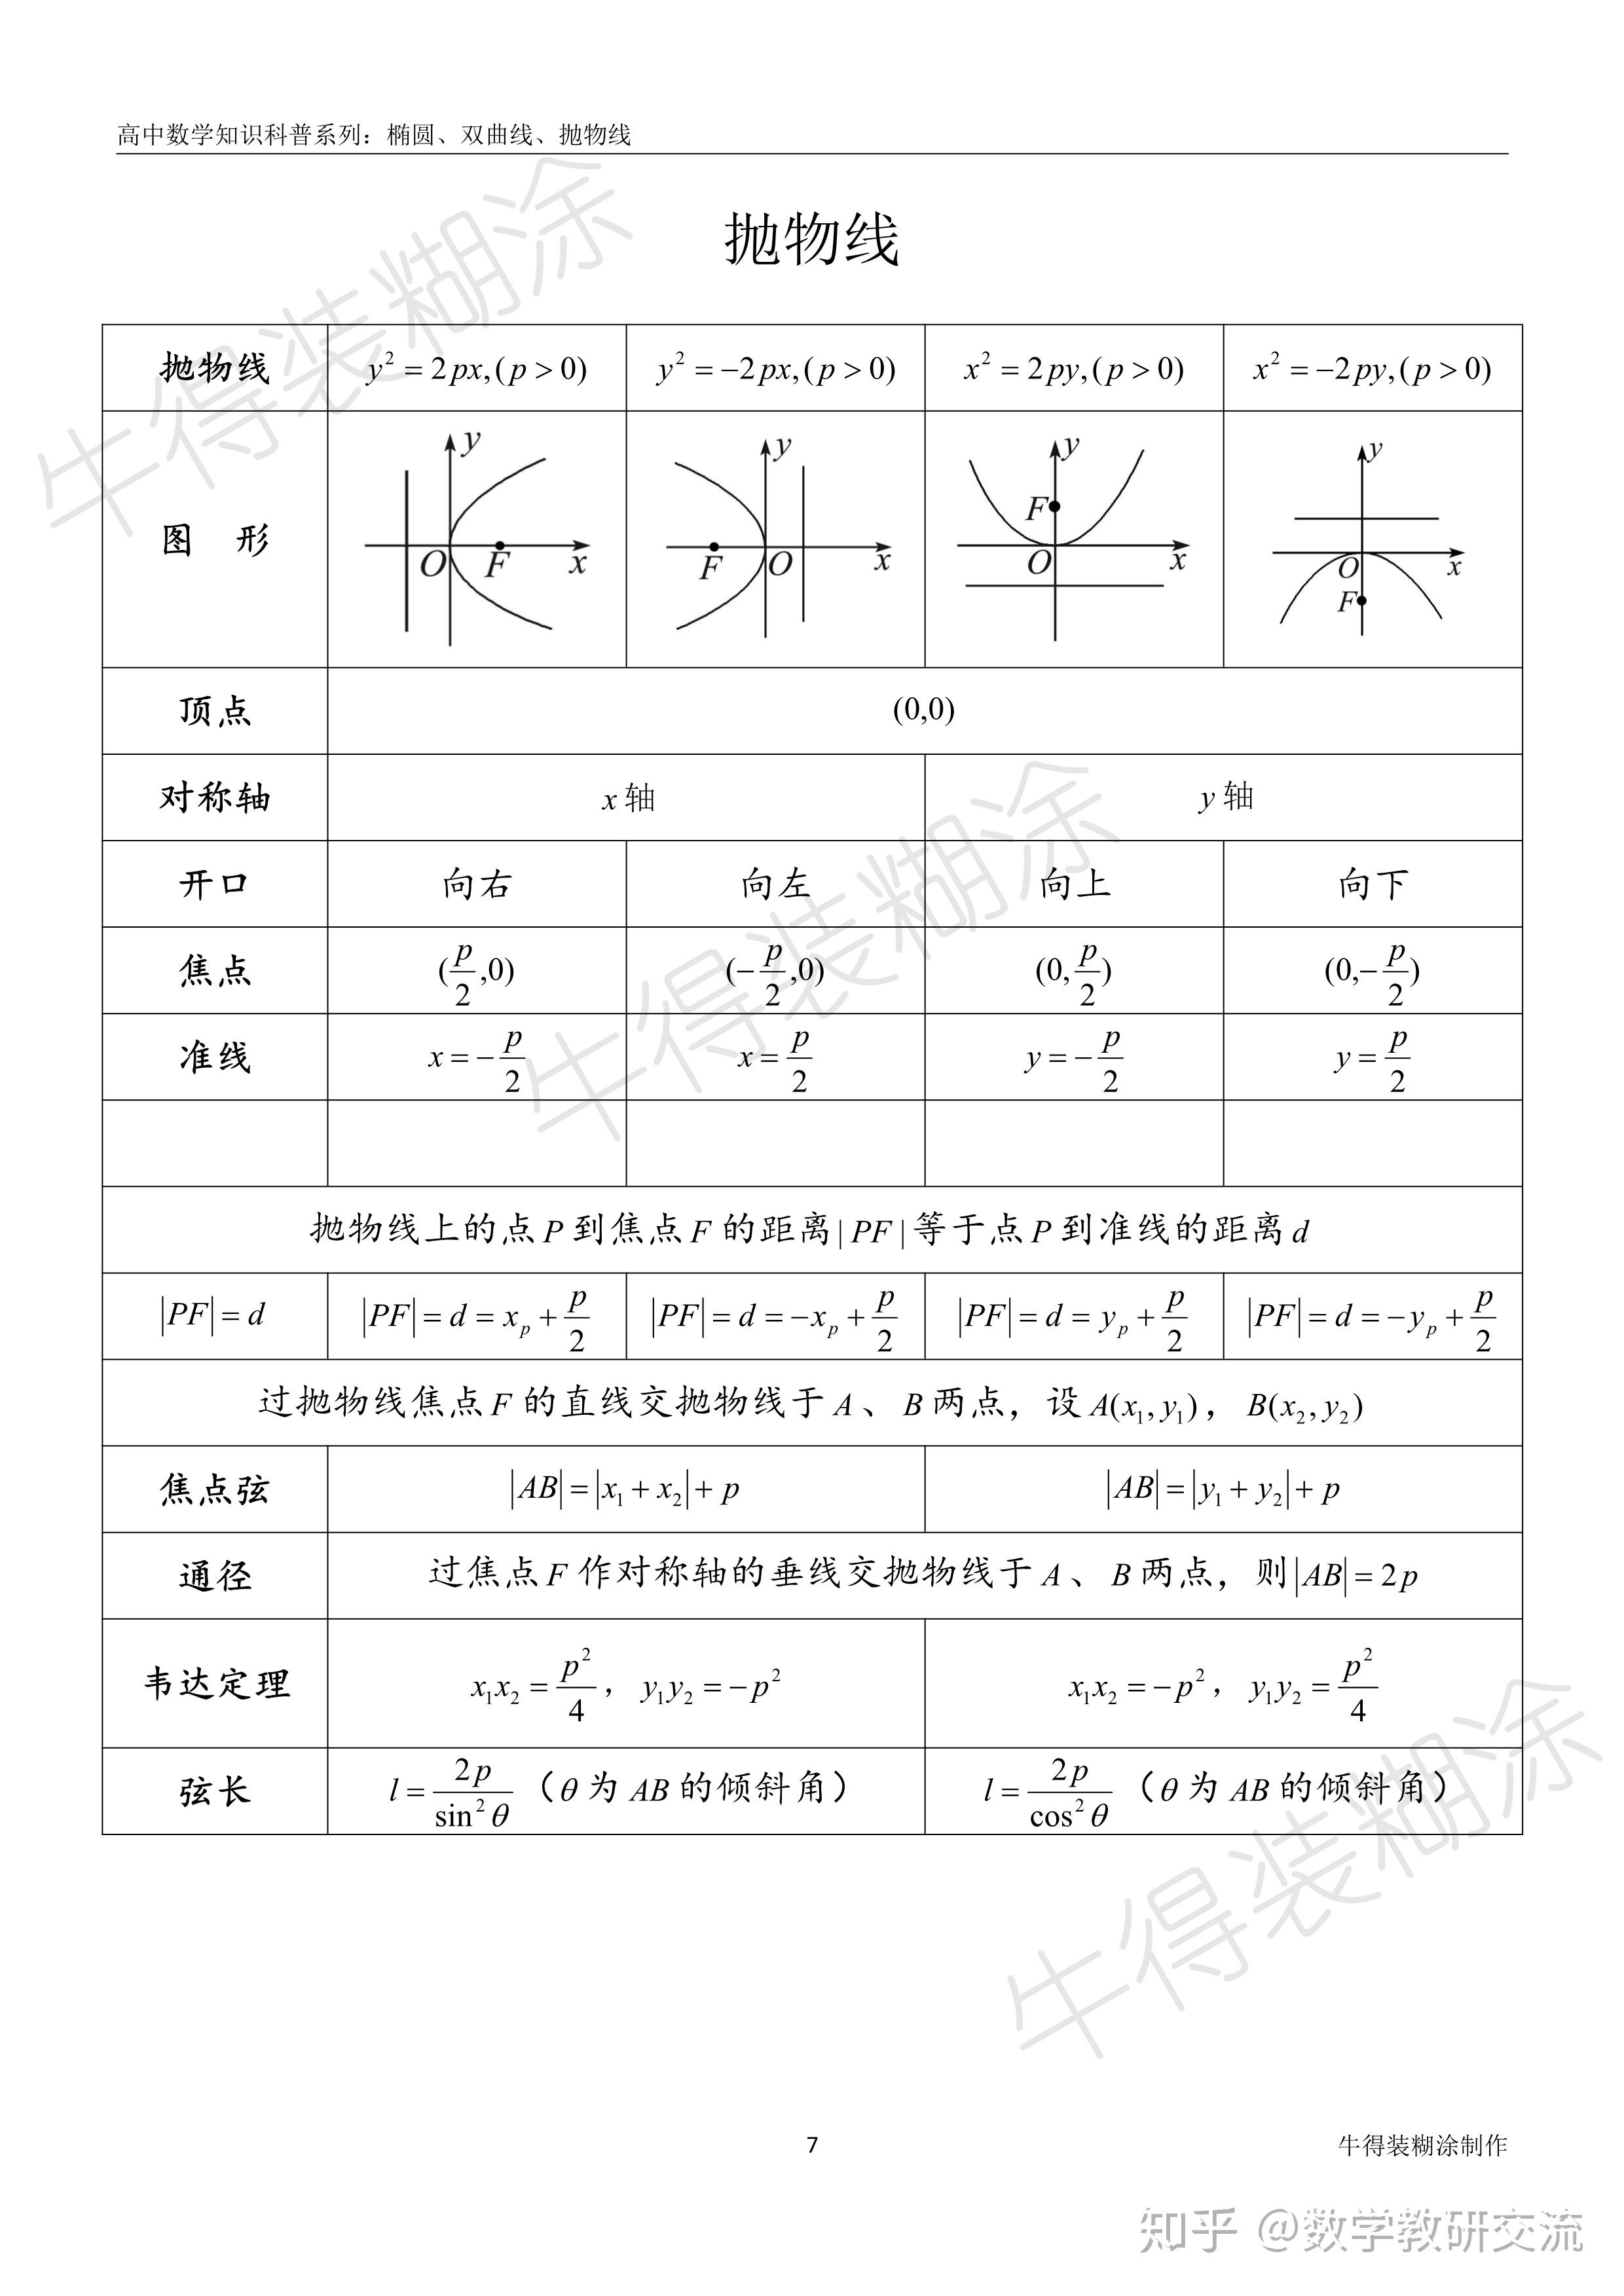 高中数学知识科普系列：椭圆、双曲线、抛物线
抛物线
抛物线 y² = 2px,(p > 0) y² = −2px,(p > 0) x² = 2py,(p > 0) x² = −2py,(p > 0)
图 形 y O F x y F O x y F O x y O x F
顶点 (0,0)
对称轴 x 轴 y 轴
开口 向右 向左 向上 向下
焦点 (p/2,0) (−p/2,0) (0,p/2) (0,−p/2)
准线 x = −p/2 x = p/2 y = −p/2 y = p/2
抛物线上的点 P 到焦点 F 的距离 | PF | 等于点 P 到准线的距离 d
|PF| = d |PF| = d = xₚ + p/2 |PF| = d = −xₚ + p/2 |PF| = d = yₚ + p/2 |PF| = d = −yₚ + p/2
过抛物线焦点 F 的直线交抛物线于 A 、 B 两点，设 A(x₁, y₁)， B(x₂, y₂)
焦点弦 |AB| = |x₁ + x₂| + p |AB| = |y₁ + y₂| + p
通径 过焦点 F 作对称轴的垂线交抛物线于 A 、 B 两点，则 |AB| = 2p
韦达定理 x₁x₂ = p²/4， y₁y₂ = −p² x₁x₂ = −p²， y₁y₂ = p²/4
弦长 l = 2p/sin²θ（θ 为 AB 的倾斜角） l = 2p/cos²θ（θ 为 AB 的倾斜角）
7
牛得装糊涂制作
知乎 @数学教研交流
牛得装糊涂
牛得装糊涂
牛得装糊涂